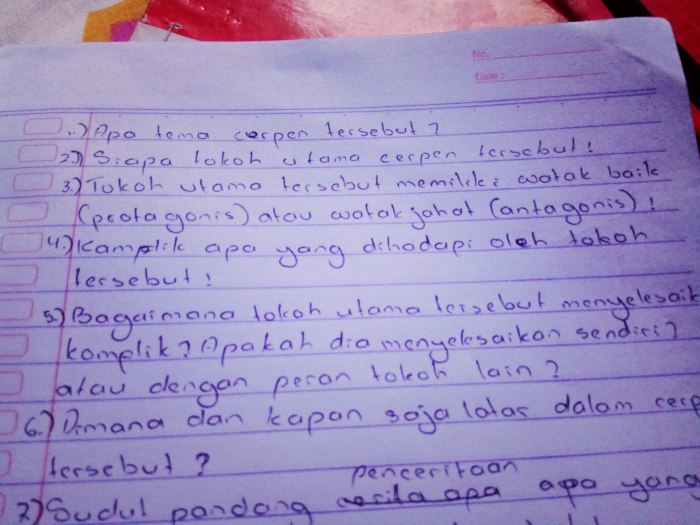 No.
Date :
1.) Apa tema cerpen tersebut?
2) Siapa tokoh utama cerpen tersebut!
3.) Tokoh utama tersebut memiliki watak baik
(protagonis) atau watak jahat (antagonis)!
4.) Kamplik apa yang dihadapi oleh tokoh
tersebut!
5) Bagaimana tokoh utama tersebut menyelesaik
komplik? Apakah dia menyelesaikan sendiri?
atau dengan peran tokoh lain?
6.) Dimana dan kapan saja latar dalam cerp
tersebut?
penceritaan
7) Sudut pandang cerita apa apa yang